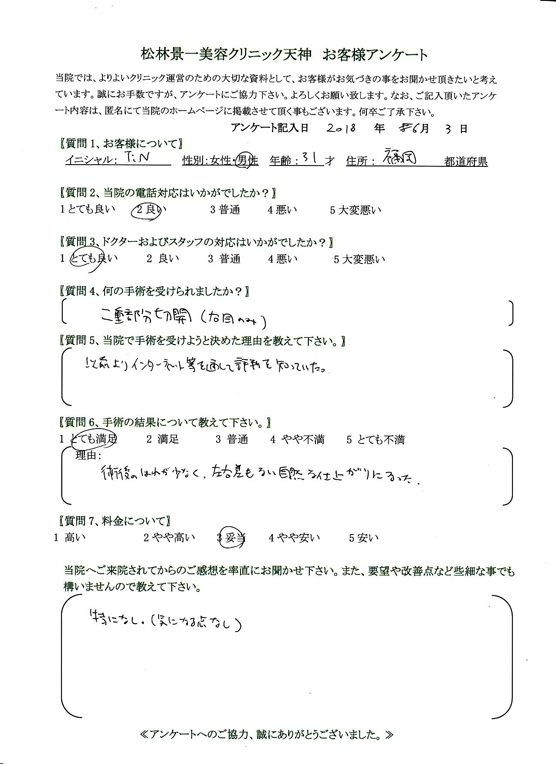 松林景一美容クリニック天神 お客様アンケート
当院では、よりよいクリニック運営のための大切な資料として、お客様がお気づきの事をお聞かせ頂きたいと考え
ています。誠にお手数ですが、アンケートにご協力下さい。よろしくお願い致します。なお、ご記入頂いたアンケ
ート内容は、匿名にて当院のホームページに掲載させて頂く事もございます。何卒ご了承下さい。
アンケート記入日 2018 年 6月 3 日
【質問1、お客様について】
イニシャル: T.N 性別:女性・男性 年齢:31才 住所: 福岡 都道府県
【質問2、当院の電話対応はいかがでしたか?】
1とても良い 2良い 3普通 4悪い 5大変悪い
【質問3、ドクターおよびスタッフの対応はいかがでしたか?】
1 とても良い 2 良い 3 普通 4悪い 5大変悪い
【質問4、何の手術を受けられましたか?】
二重部分切開(右目のみ)
【質問5、当院で手術を受けようと決めた理由を教えて下さい。】
以前よりインターネット等を通して評判を知っていた。
【質問6、手術の結果について教えて下さい。】
1 とても満足 2 満足 3 普通 4 やや不満 5 とても不満
理由:
術後のはれが少なく、左右差もない自然な仕上がりになった。
【質問7、料金について】
1 高い 2やや高い 3 妥当 4やや安い 5安い
当院へご来院されてからのご感想を率直にお聞かせ下さい。また、要望や改善点など些細な事でも
構いませんので教えて下さい。
特になし。(気になる点なし)
≪アンケートへのご協力、誠にありがとうございました。≫